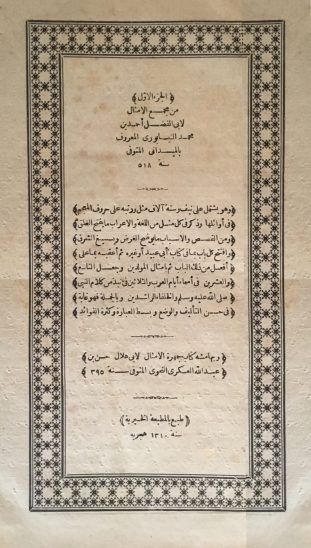 ﴿ الجزء الاول ﴾
من مجمع الامثال
لابى الفضل أحمد بن
محمد النيسابورى المعروف
بالميدانى المتوفى
سنة ٥١٨
﴿ وهو يشتمل على نيف وستة آلاف مثل ورتبه على حروف المعجم ﴾
﴿ فى أوائلها وذكر فى كل مثل من اللغة والاعراب ما يفتح الغلق ﴾
﴿ ومن القصص والاسباب ما يوضح الغرض ويسيغ الشرق ﴾
﴿ وافتتح كل باب بما فى كتاب أبى عبيد أو غيره ثم أعقبه بما على ﴾
﴿ أفعل من ذلك الباب ثم أمثال المولدين وجعل التاسع ﴾
﴿ والعشرين فى أسماء أيام العرب والثلاثين فى نبذ من كلام النبى ﴾
﴿ صلى الله عليه وسلم والخلفاء الراشدين وبالجملة فهو غاية ﴾
﴿ فى حسن التأليف والوضع وبسط العبارة وكثرة الفوائد ﴾
﴿ وبهامشه كتاب جمهرة الامثال لابى هلال حسن بن ﴾
﴿ عبد الله العسكرى اللغوى المتوفى سنة ٣٩٥ ﴾
﴿ طبع بالمطبعة الخيرية ﴾
سنة ١٣١٠ هجريه